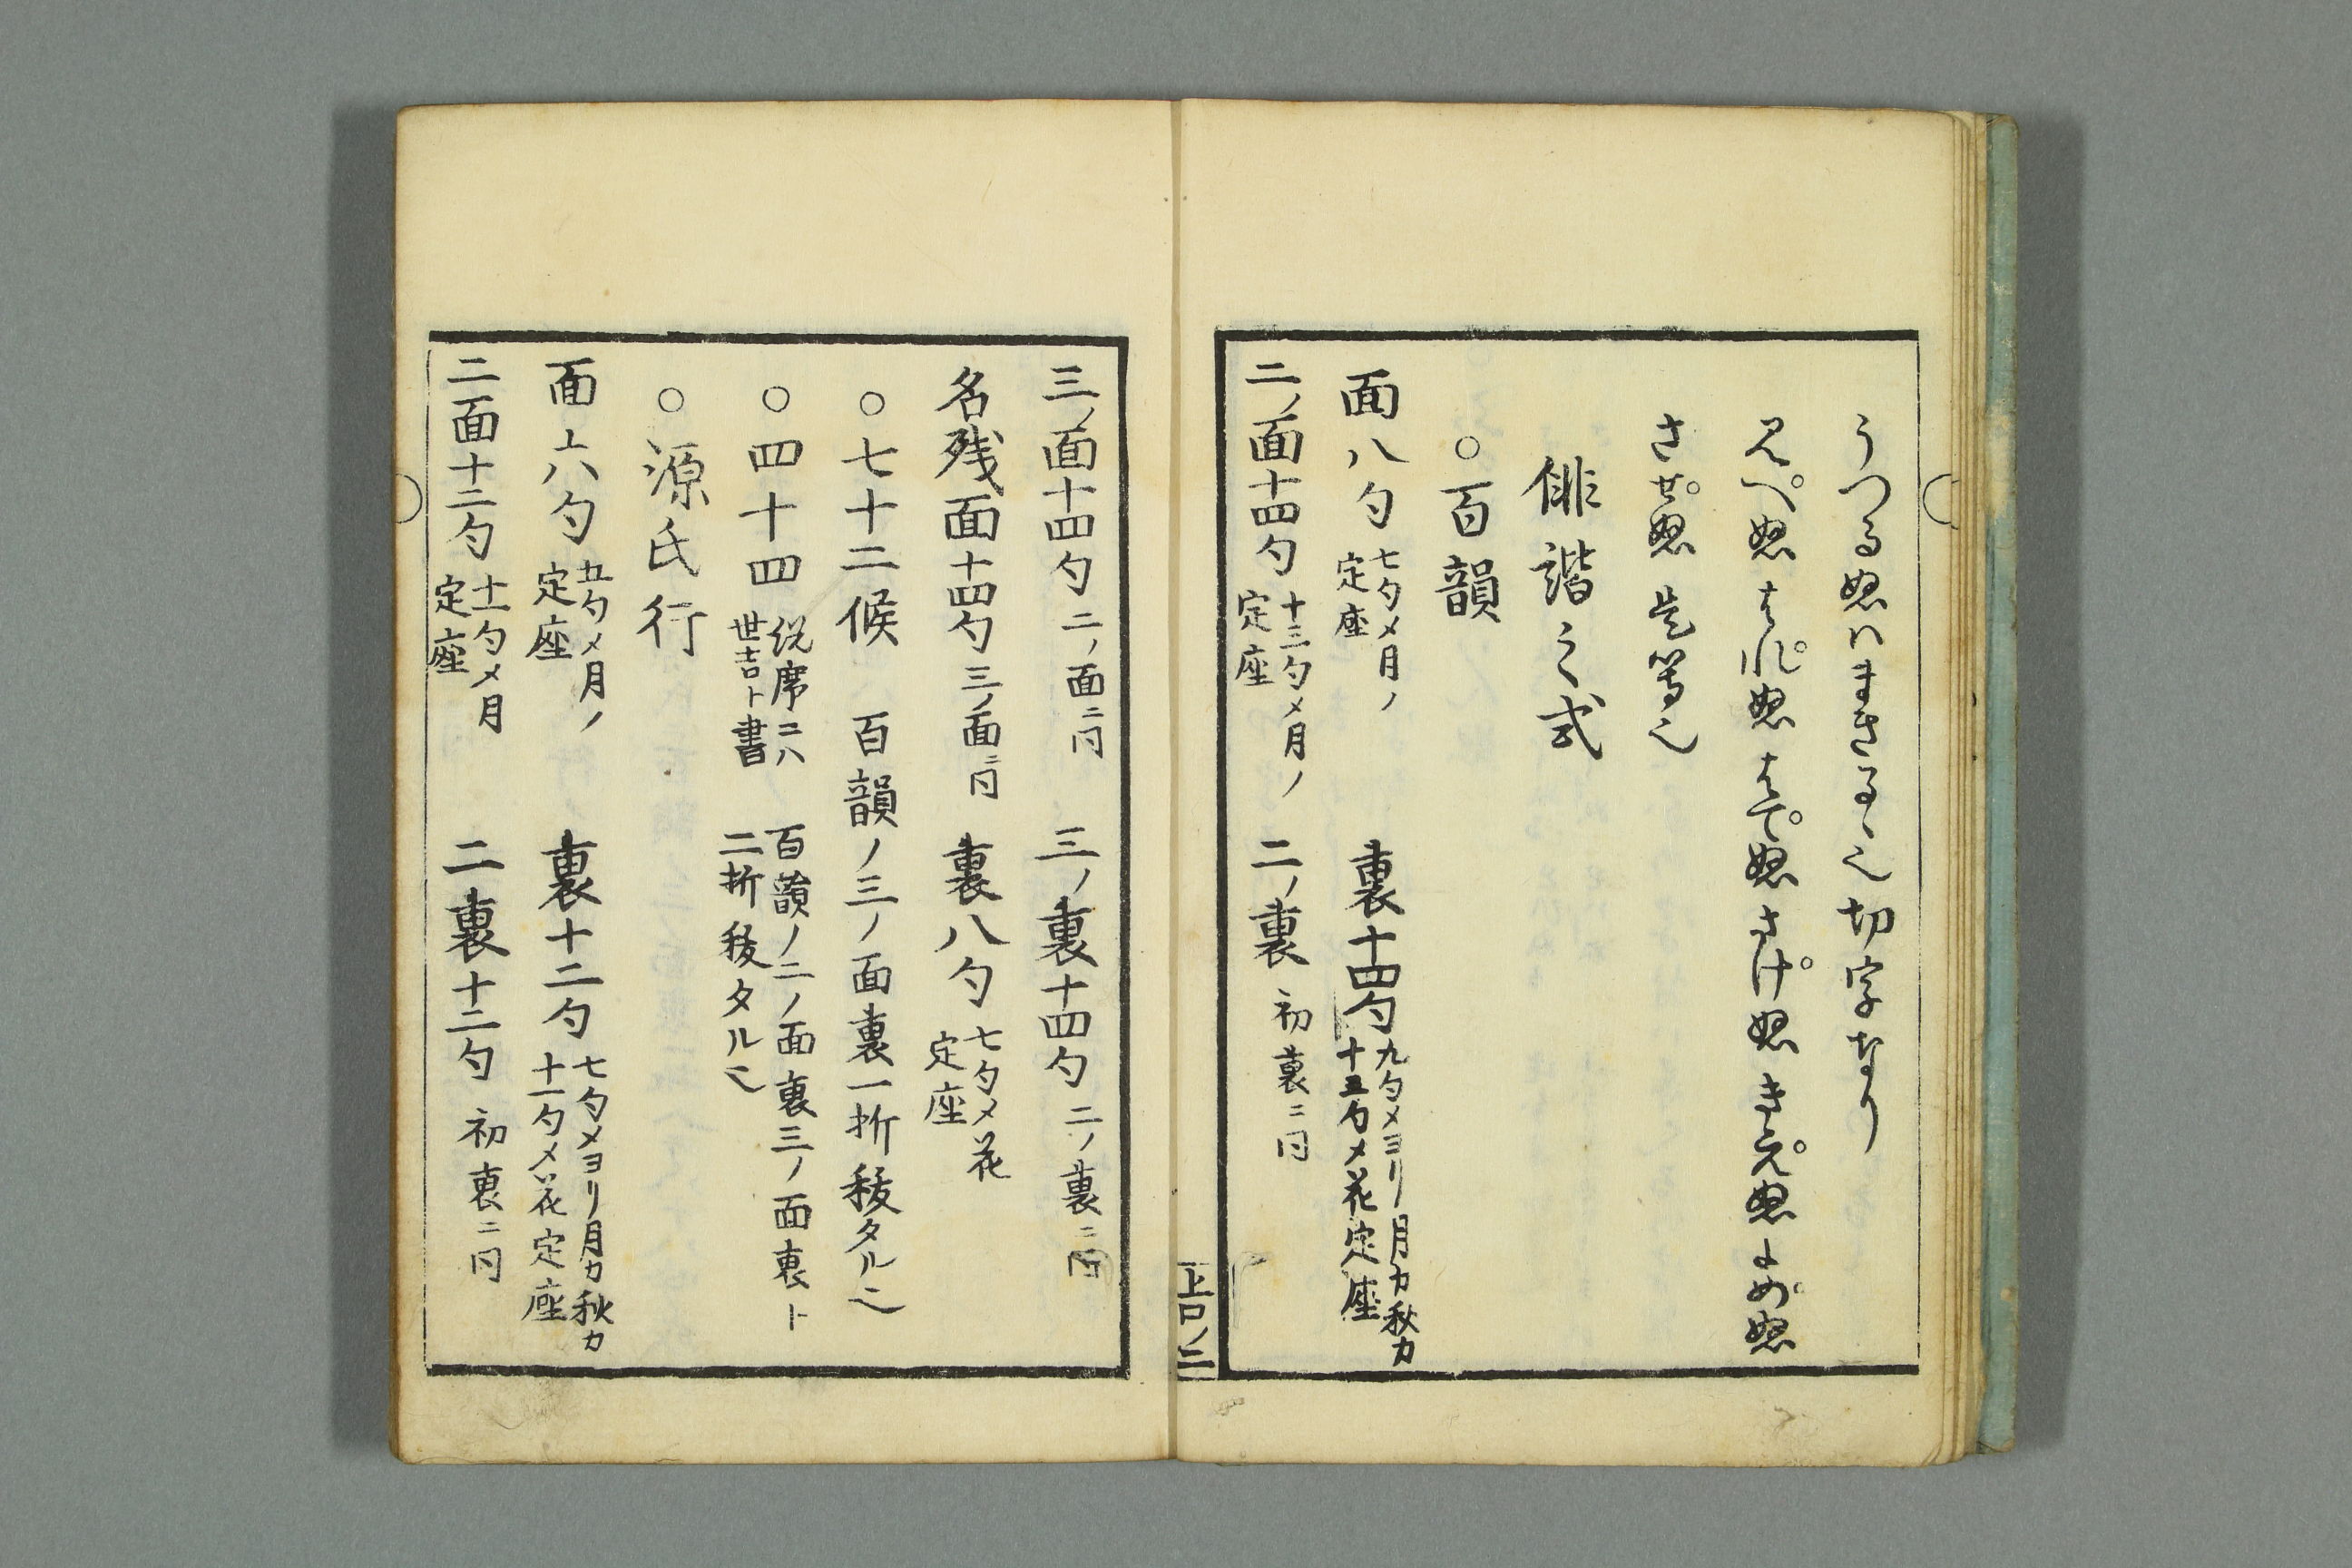 うつるぬハまさるゝ也切字なり
見へぬ それぬ そてぬ さけぬ きえぬ よめぬ
させぬ 是等也
俳諧之式
○百韻
面八句 七句メ月ノ定座 裏十四句 九句メヨリ月カ秋カ 十三句メ花定座
二ノ面十四句 十三句メ月ノ定座 二ノ裏 初裏ニ同
上口ノ二
三ノ面十四句 二ノ面ニ同 三ノ裏十四句 二ノ裏ニ同
名残面十四句 三ノ面ニ同 裏八句 七句メ花定座
○七十二候 百韻ノ三ノ面裏一折稜タル也
○四十四 祝席ニハ世吉ト書 百韻ノ二ノ面裏三ノ面裏ト二折稜タル也
○源氏行
面上六句 五句メ月ノ定座 裏十二句 七句メヨリ月カ秋カ 十一句メ花定座
二面十二句 十一句メ月定座 二裏十二句 初裏ニ同